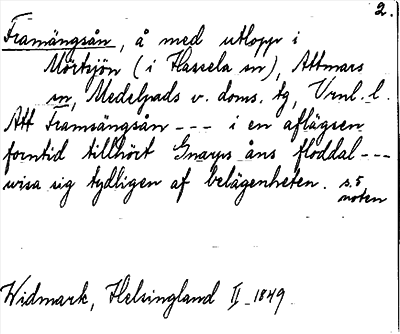 2.
Framängsån, å med utlopp i
Mörtsjön (i Hassela sn), Attmars
sn, Medelpads v. doms. tg, Vrnl. l.
Att Framsängsån --- i en aflägsen
forntid tillhört Gnarps åns floddal ---
wisa sig tydligen af belägenheten. s. 5
noten
Widmark, Helsingland II 1849.